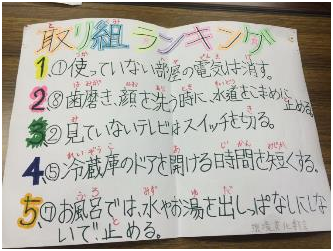 取り組ランキング
1.①使っていない部屋の電気は消す。
2⑧歯磨き、顔を洗う時に、水道をこまめに
止める。
3②見ていないテレビはスイッチを切る。
4⑤冷蔵庫のドアを開ける時間を短くする。
5.⑦お風呂では、水やお湯を出しっぱなしにしな
いで!!止める。